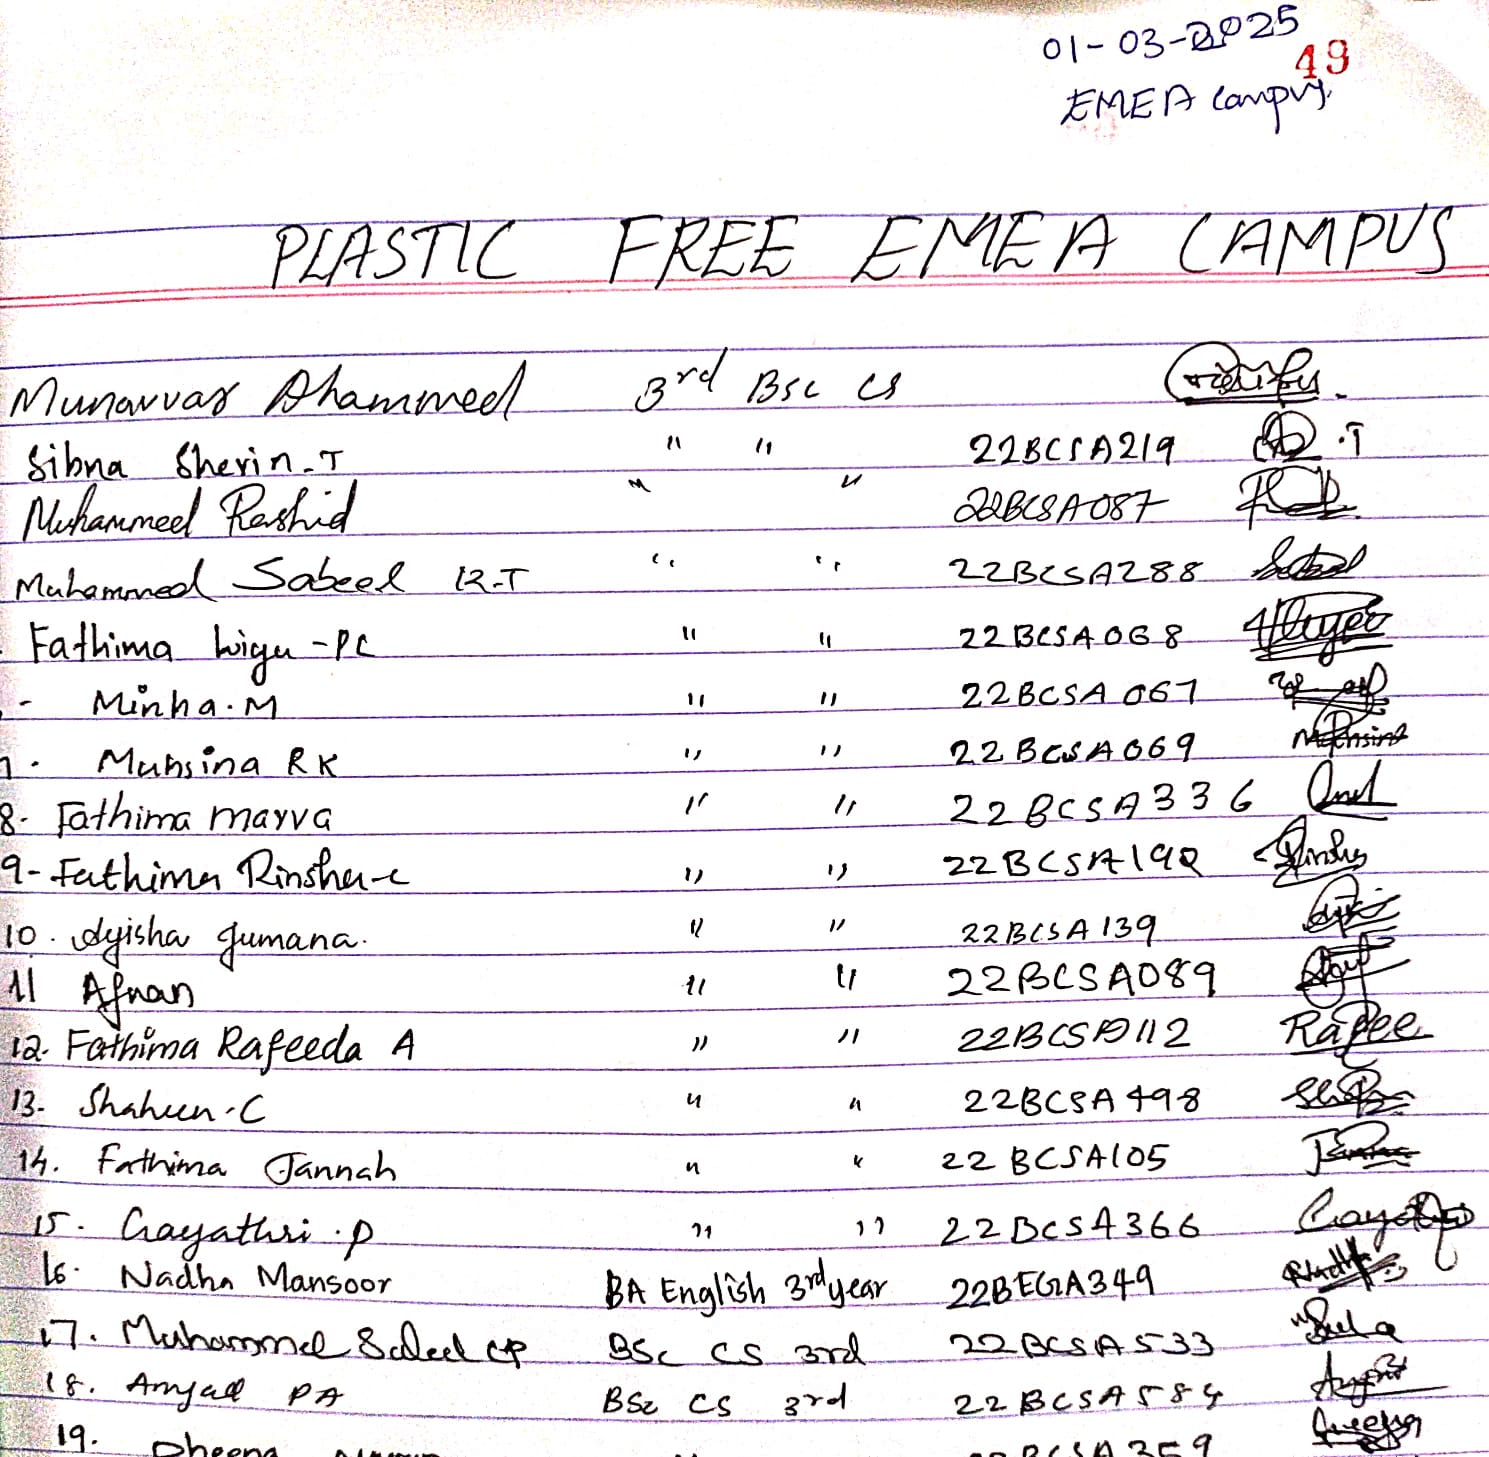 01-03-2025
49
EMEA Campus
PLASTIC FREE EMEA CAMPUS
Munavvar Ahammed 3rd Bsc CS
Sibna Sherin-T " " 22BCSA219 .T
Muhammed Rashid " " 22BCSA087
Muhammed Sabeel K.T " " 22BCSA288
Fathima -PC " " 22BCSA068
- Minha.M " " 22BCSA067
7. Muhsina RK " " 22BCSA069
8. Fathima marva " " 22BCSA336
9- Fathima Rinsha-c " " 22BCSA192
10. Ayisha Jumana. " " 22BCSA139
11 Afnan " " 22BCSA089
12. Fathima Rafeeda A " " 22BCSA112 Rafee
13- Shaheen.C " " 22BCSA498
14. Fathima Jannah " " 22BCSA105
15. Gayathri.p " " 22BCSA366
16. Nadha Mansoor BA English 3rd year 22BEGA349
17. Muhammed CP BSc CS 3rd 22BCSA533
18. Amjad PA BSc CS 3rd 22BCSA584
19.